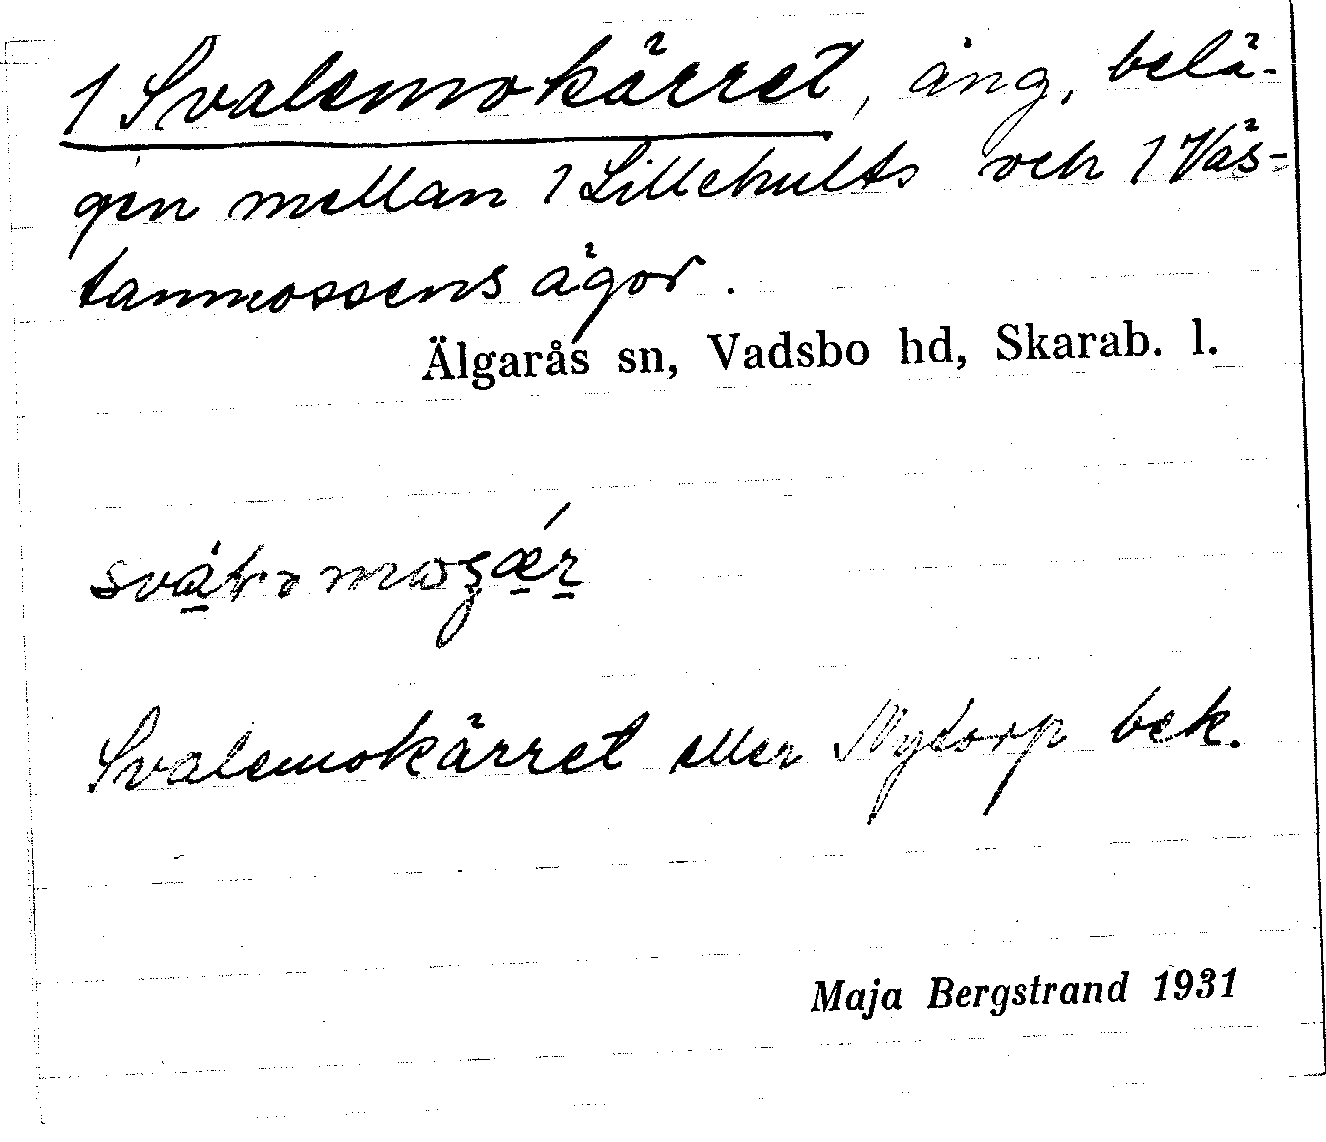 1 Svalemokärret, äng, belä-
gen mellan 1 Lillehults och 1 Väs-
tanmossens ägor.
Älgarås sn, Vadsbo hd, Skarab. l.
Svalemokärret eller Nytorp bek.
Maja Bergstrand 1931